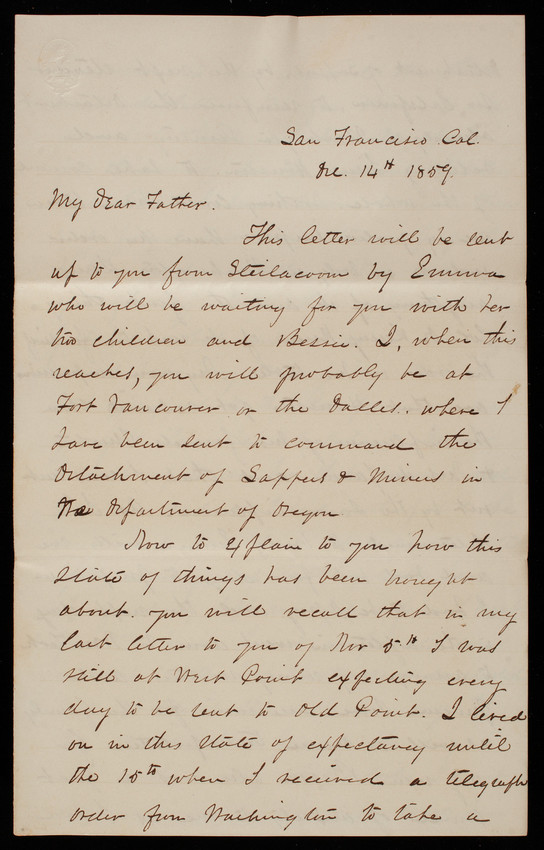 San Francisco Cal.
Dec. 14th 1859.
My Dear Father.
This letter will be sent
up to you from Steilacoom by Emma
who will be waiting for you with her
two children and Bessie. I, when this
reaches, you will probably be at
Fort Vancouver or the Dalles. where I
have been sent to command the
Detachment of Sappers & Miners in
the Department of Oregon
Now to explain to you how this
state of things has been brought
about. you will recall that in my
last letter to you of Nov 5th I was
still at West Point expecting every
day to be sent to Old Point. I lived
on in this state of expectancy until
the 15th when I received a telegraph
order from Washington to take a